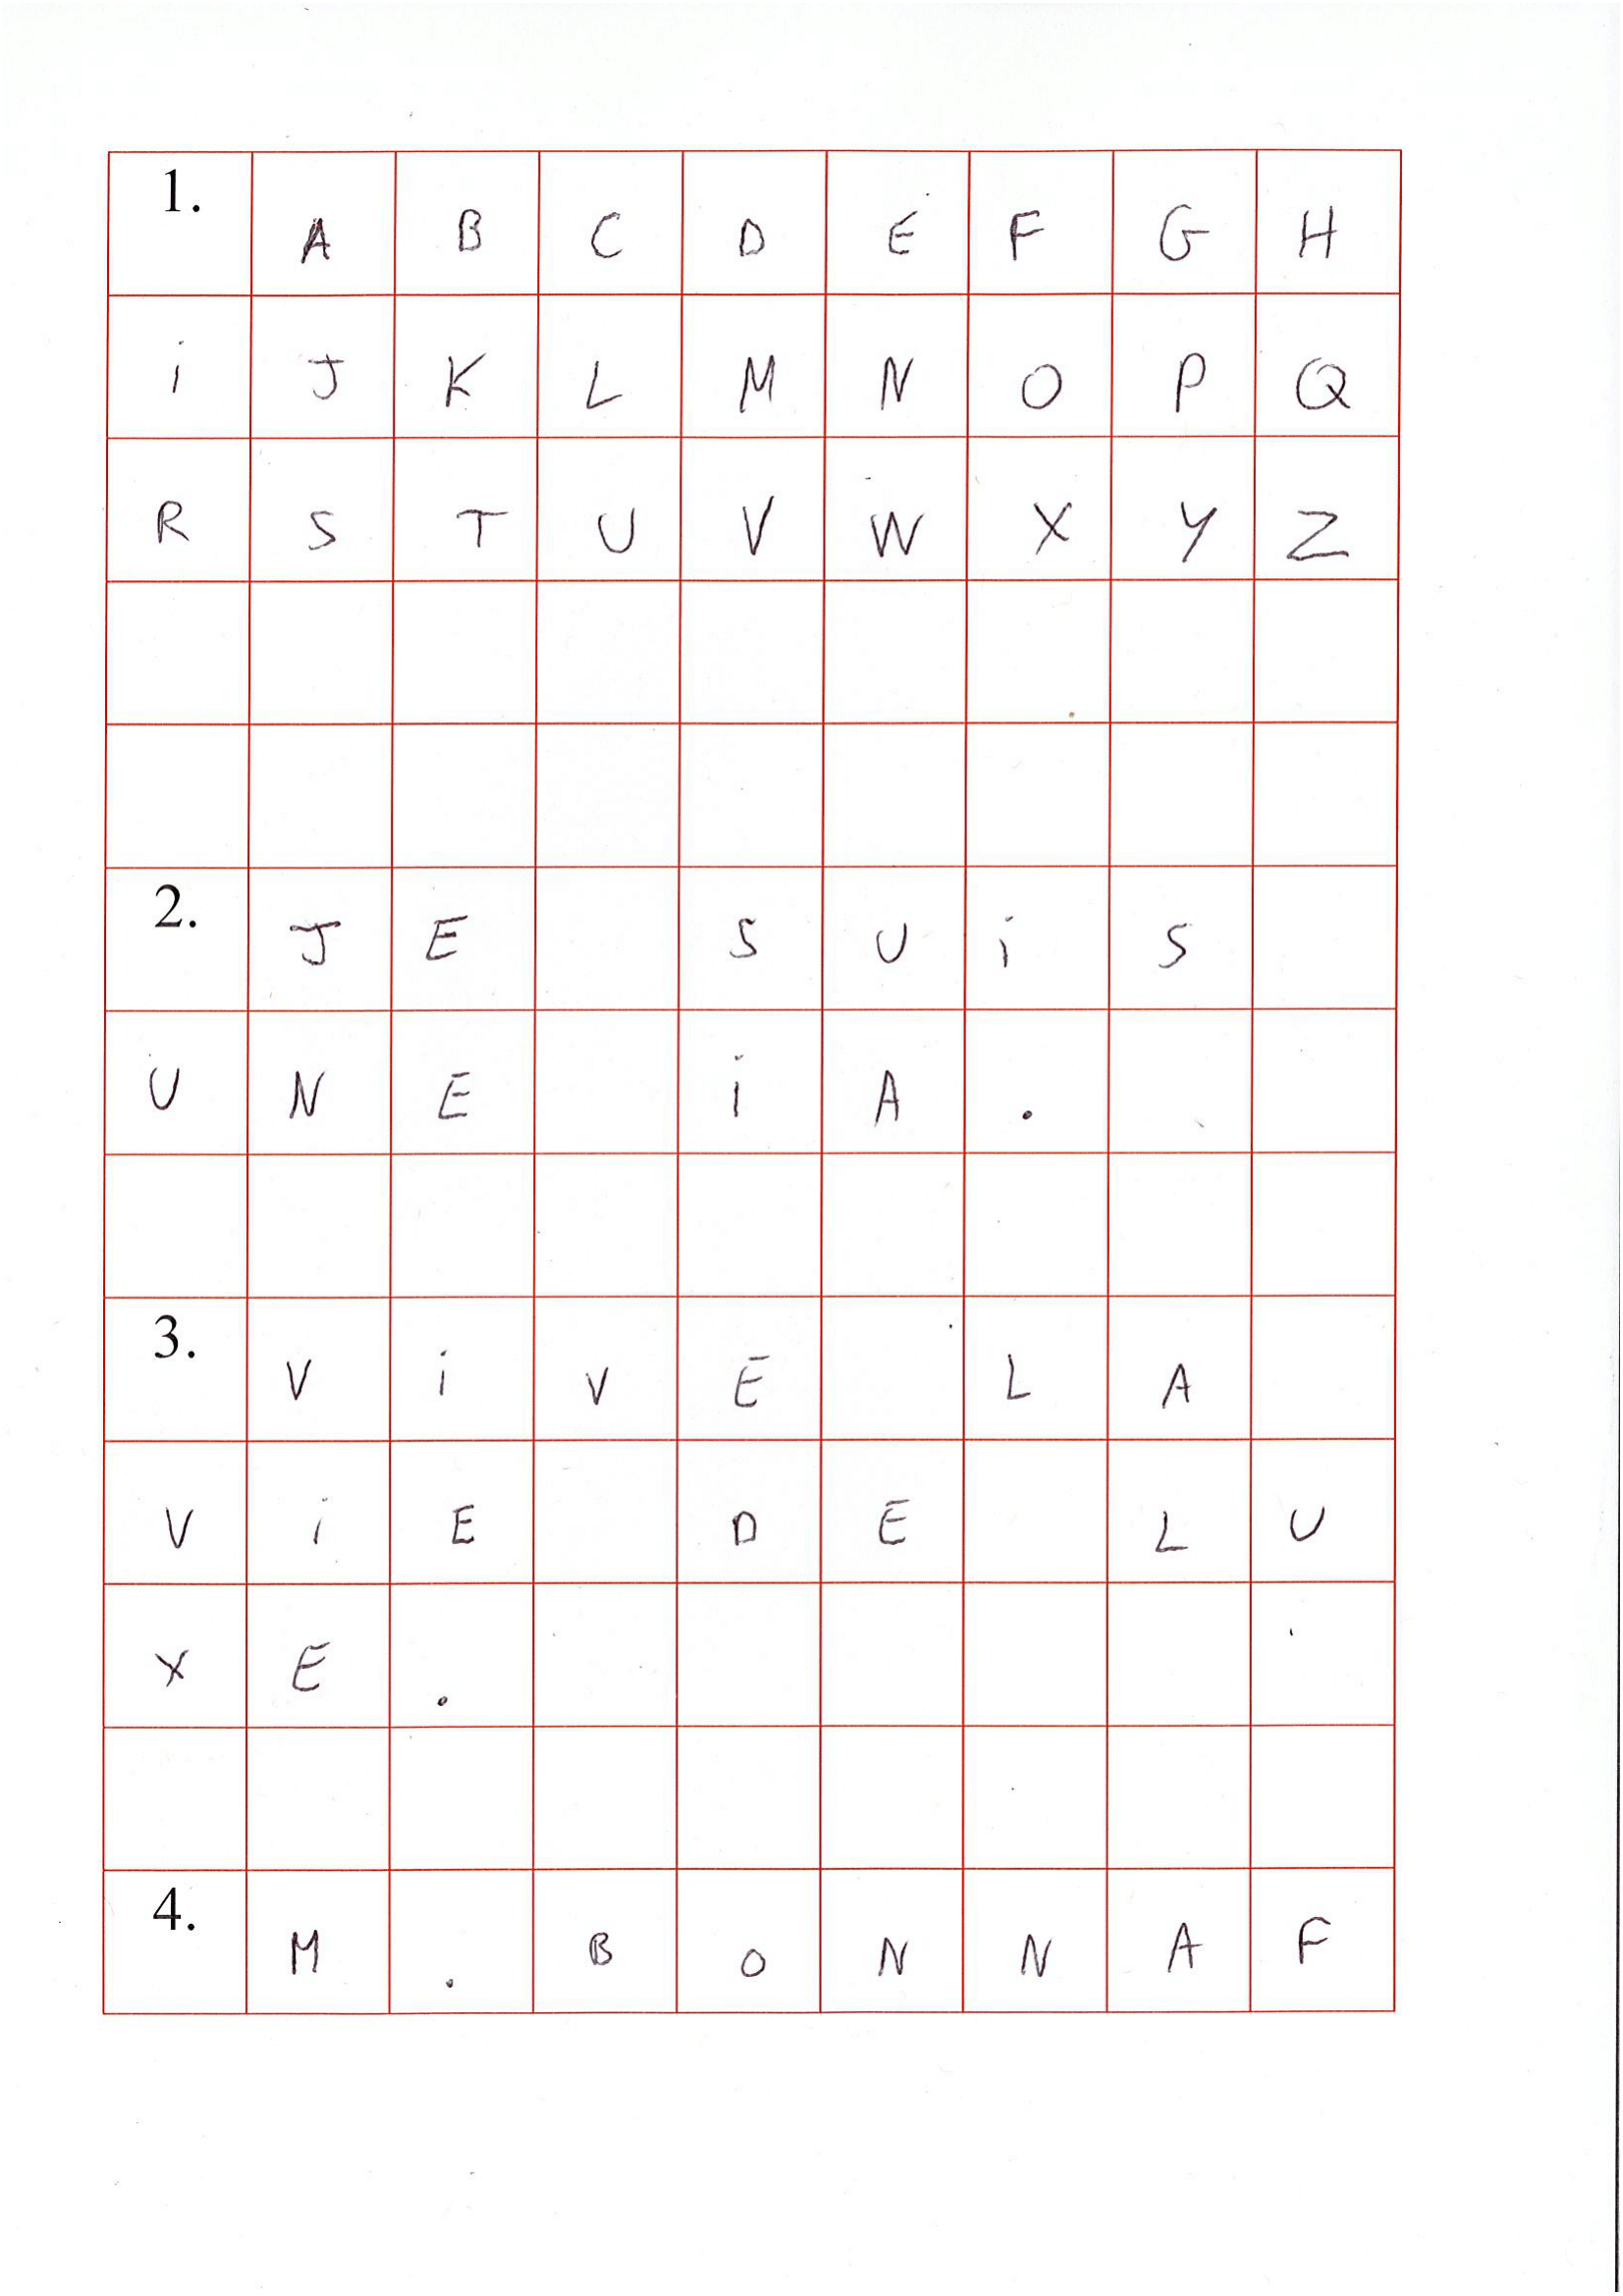 1. A B C D E F G H
i J K L M N O P Q
R S T U V W X Y Z
2. J E S U i S
U N E i A .
3. V i V E L A
V i E D E L U
X E .
4. M . B O N N A F